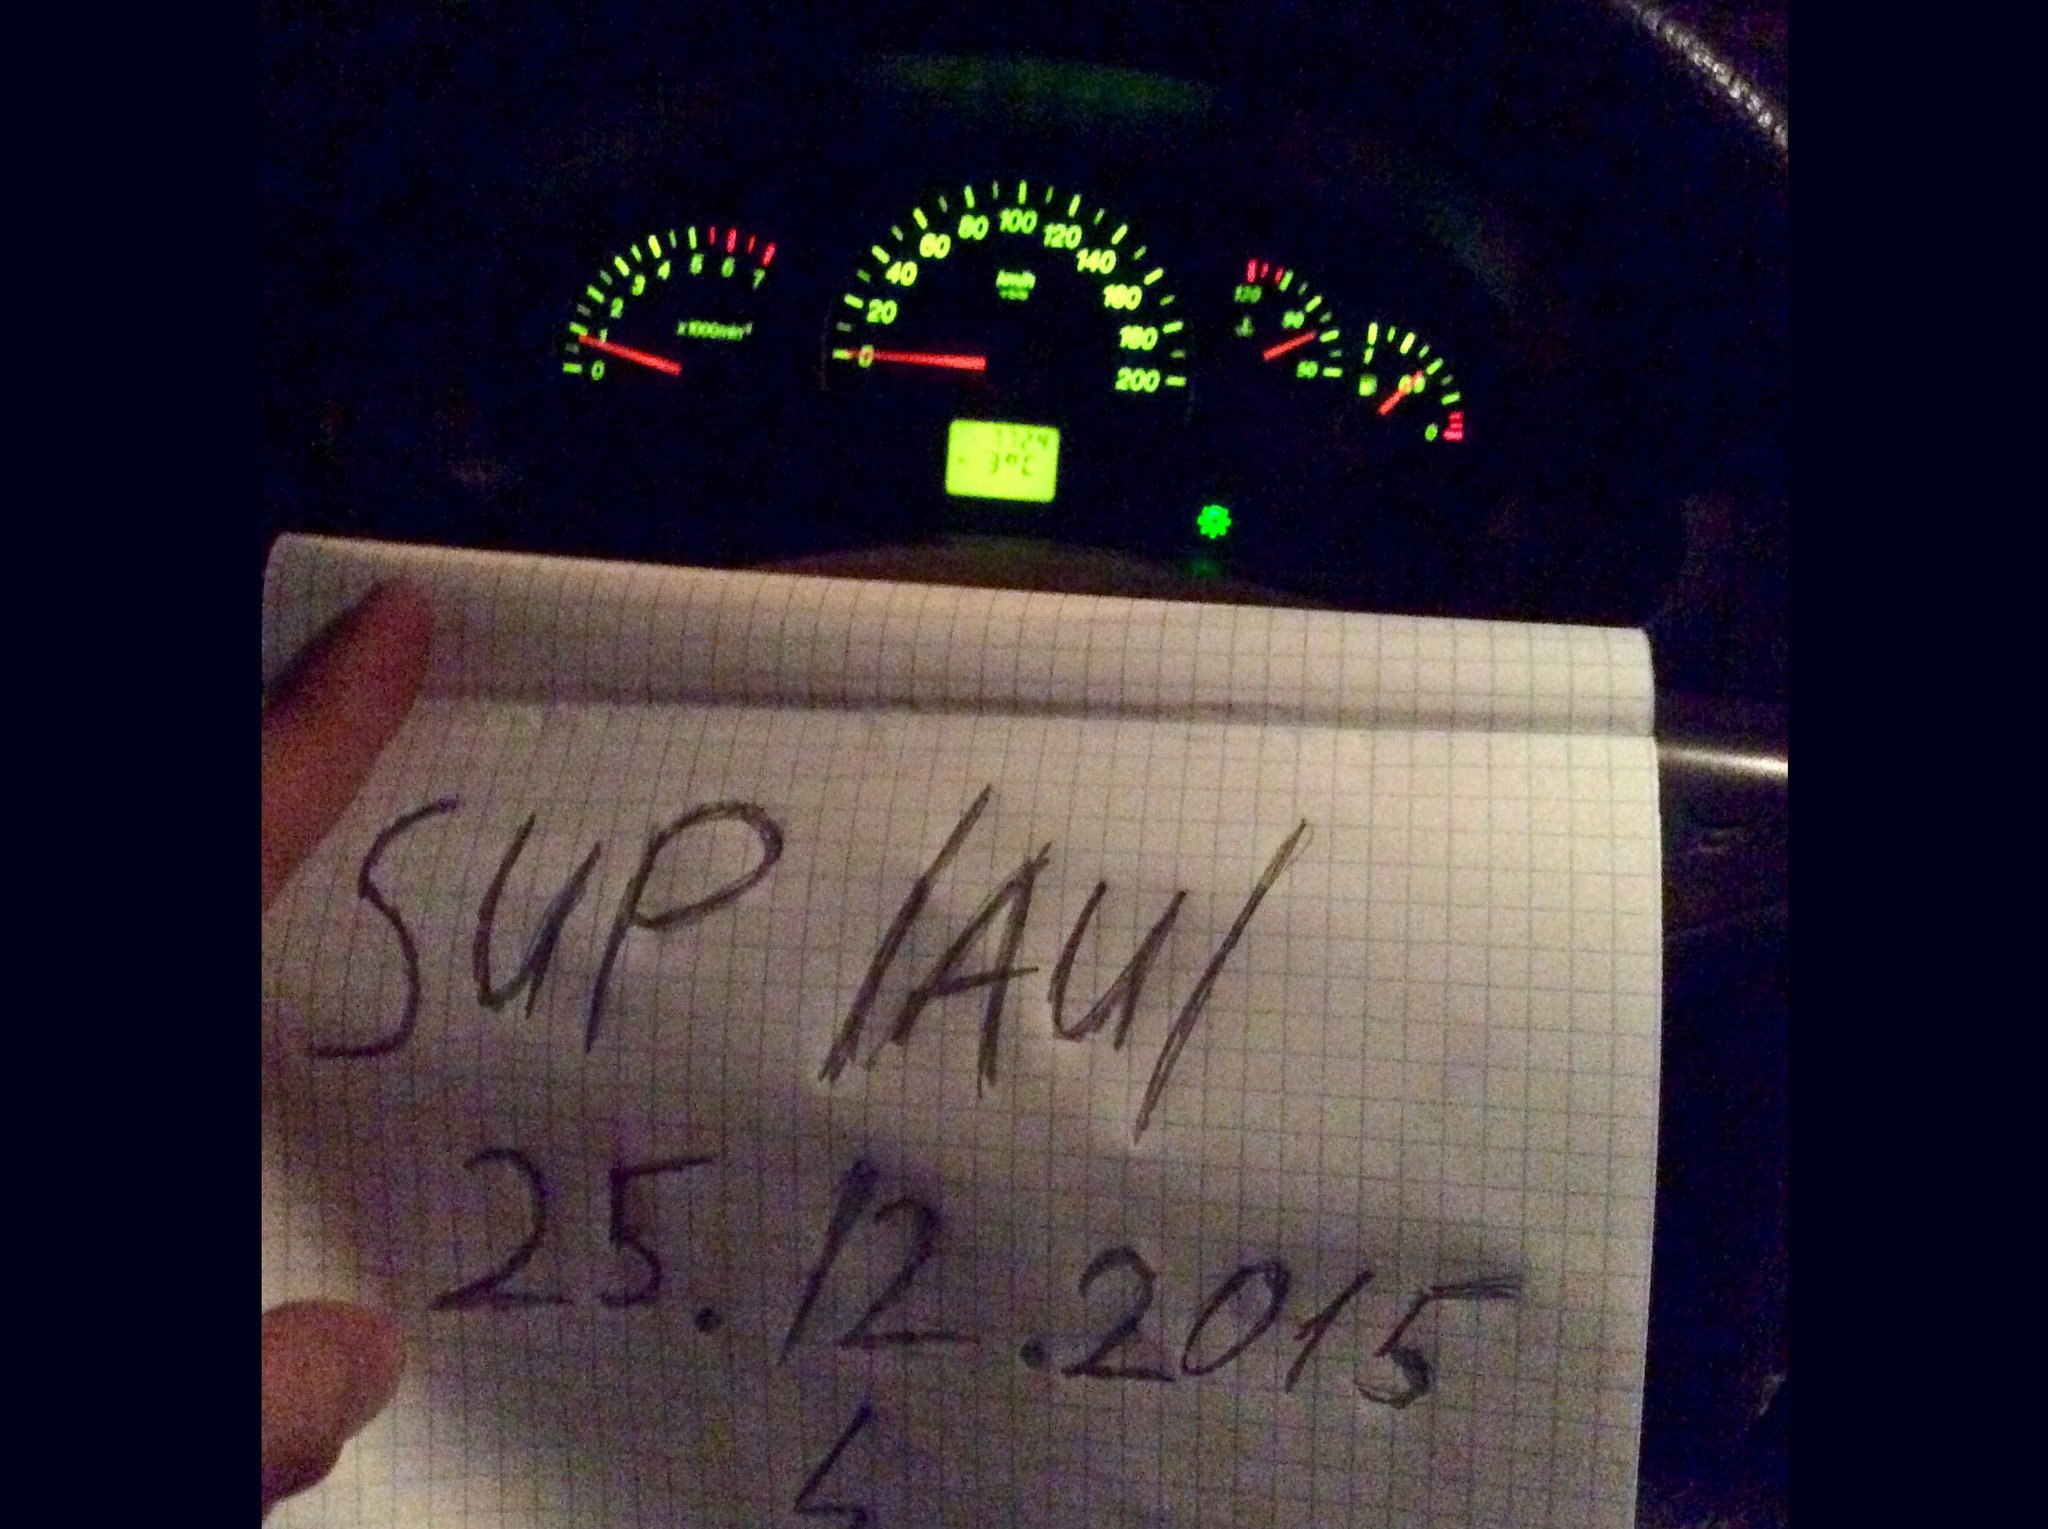 0 1 2 3 4 5 6 7
x1000min⁻¹
0 20 40 60 80 100 120 140 160 180 200
km/h
50 90 130
0 0.5 1
-3°C
SUP /AU/
25.12.2015